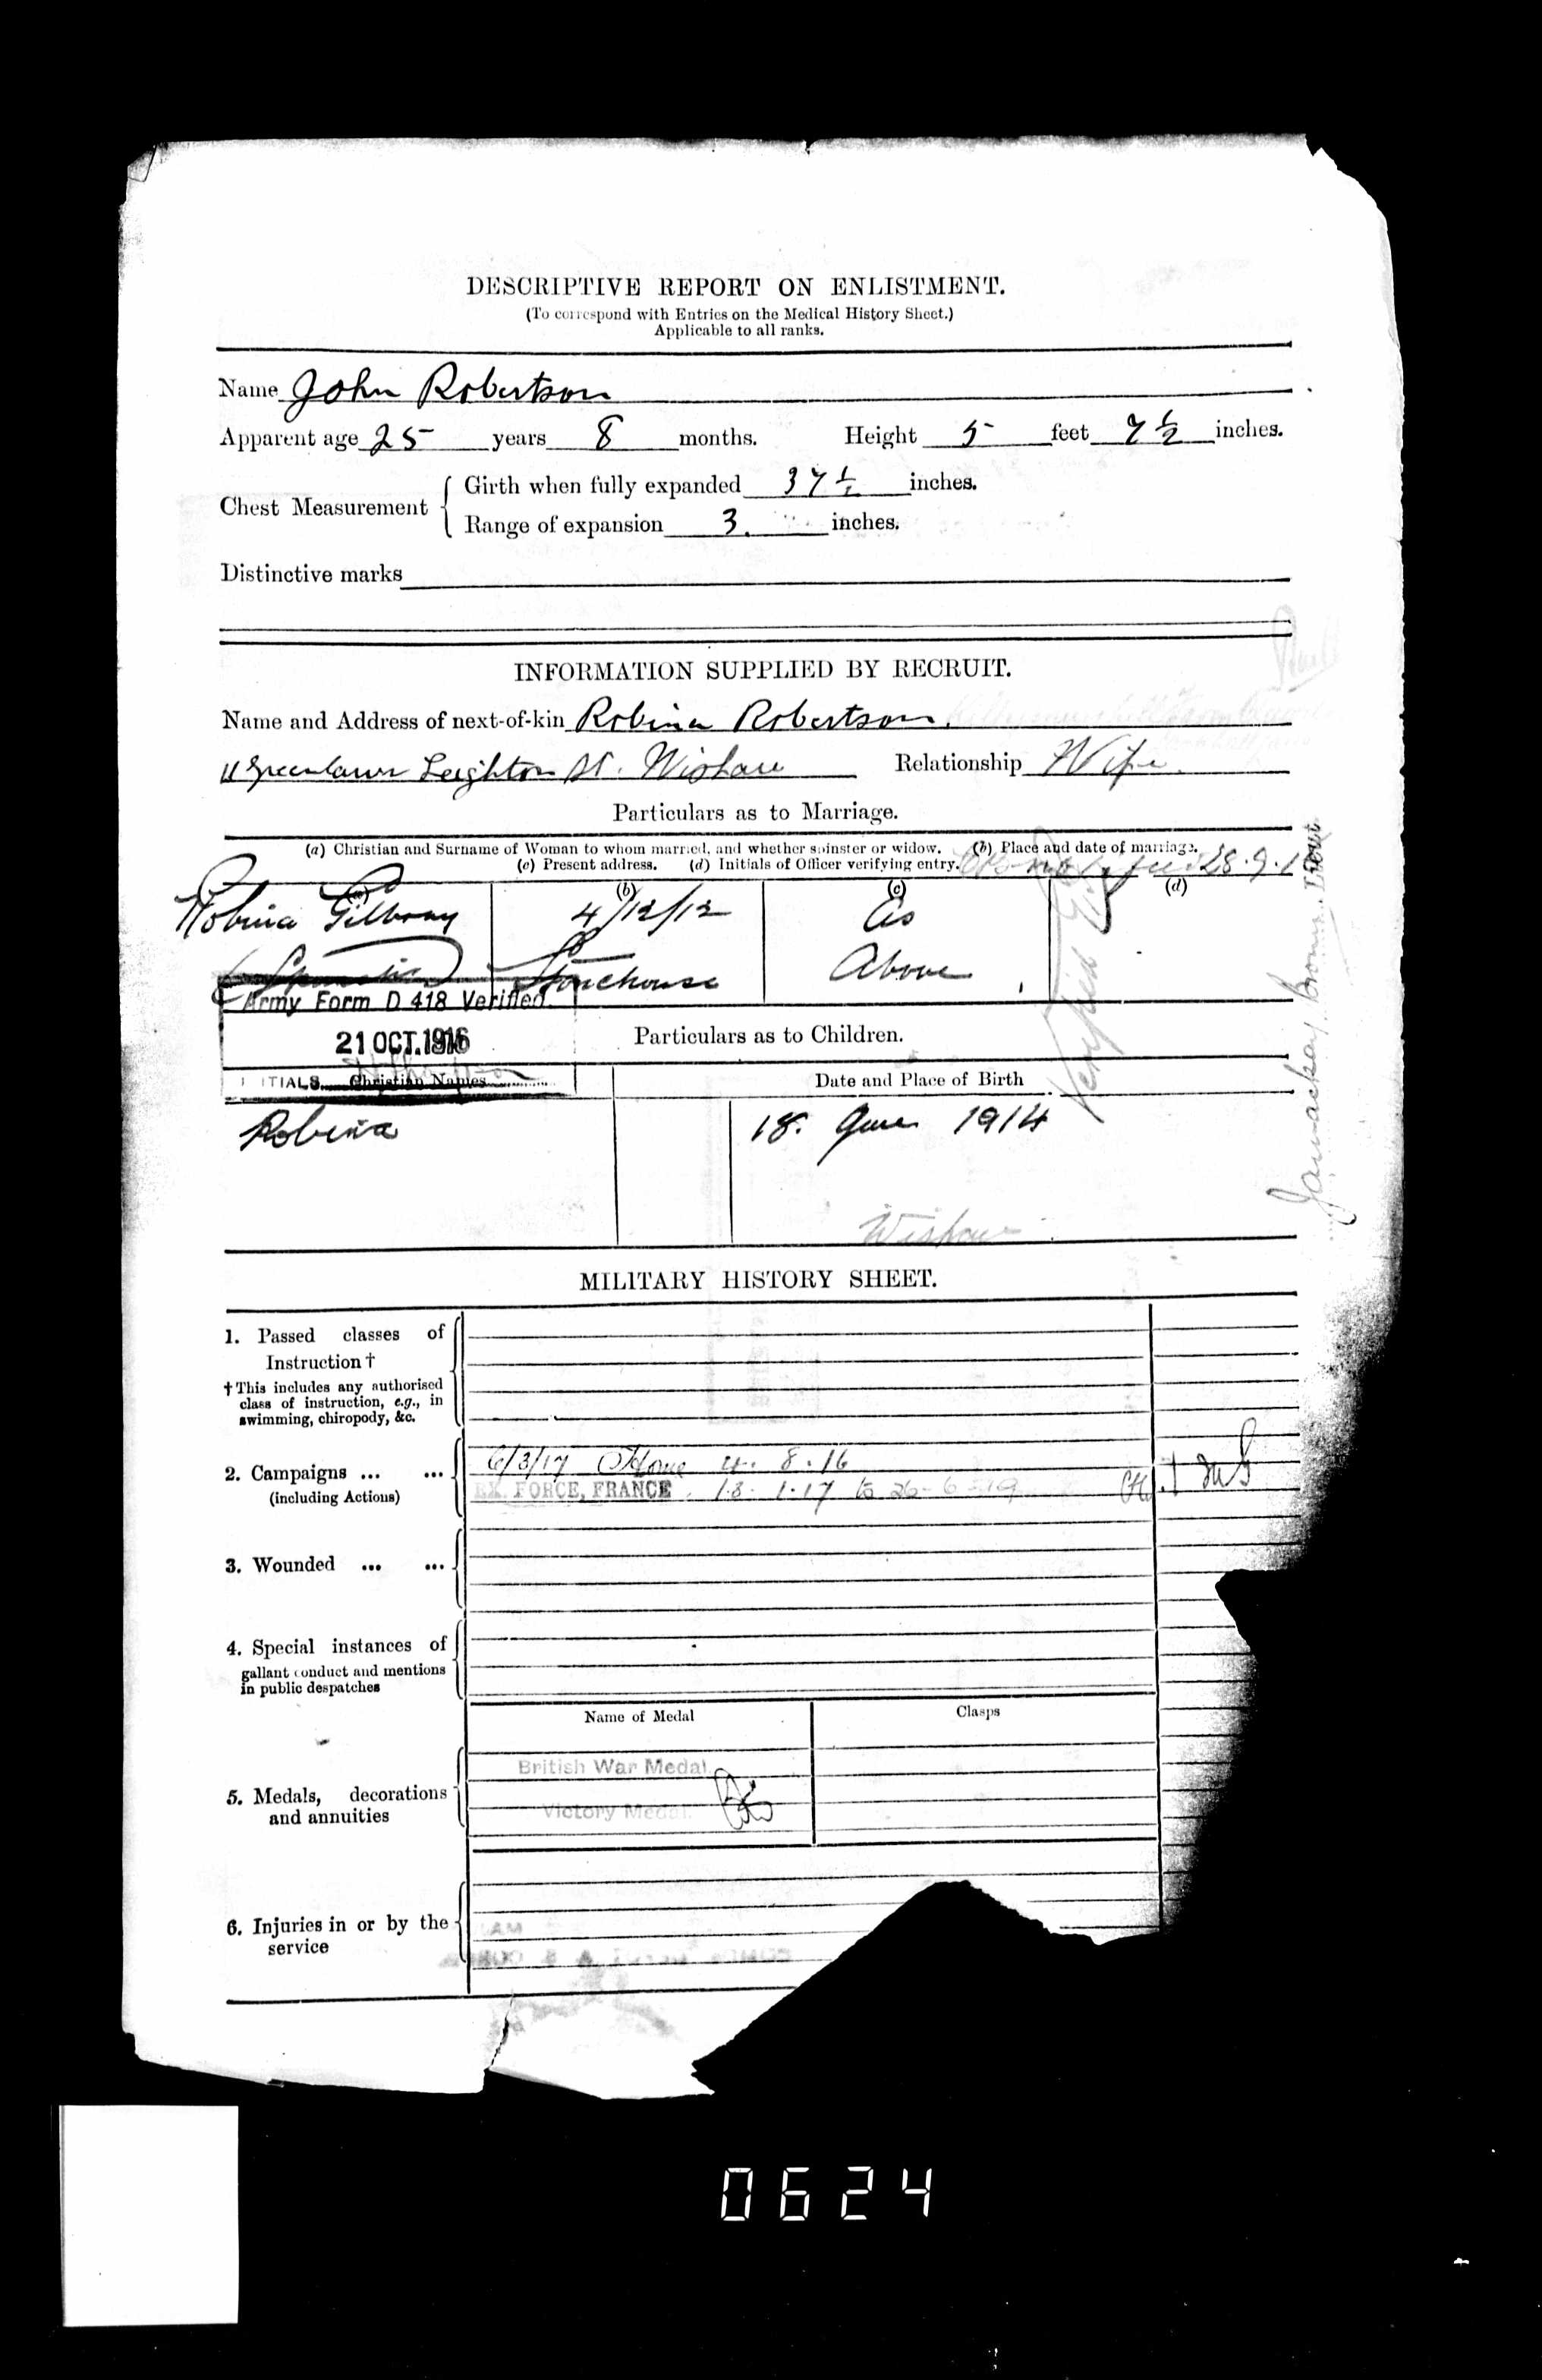 DESCRIPTIVE REPORT ON ENLISTMENT.
(To correspond with Entries on the Medical History Sheet.)
Applicable to all ranks.
Name John Robertson
Apparent age 25 years 8 months. Height 5 feet 7 1/2 inches.
Chest Measurement { Girth when fully expanded 37 1/2 inches.
Range of expansion 3. inches.
Distinctive marks
INFORMATION SUPPLIED BY RECRUIT.
Name and Address of next-of-kin Robina Robertson.
Leighton St. Wishaw Relationship Wife.
Particulars as to Marriage.
(a) Christian and Surname of Woman to whom married, and whether spinster or widow. (b) Place and date of marriage.
(c) Present address. (d) Initials of Officer verifying entry.
28.9.
(a) (b) (c) (d)
Robina 4/12/12 As
Stonehouse Above
Army Form D 418 Verified.
21 OCT. 1916 Particulars as to Children.
INITIALS Christian Names Date and Place of Birth
Verified
Robina 18. June 1914
Wishaw
MILITARY HISTORY SHEET.
1. Passed classes of
Instruction †
† This includes any authorised
class of instruction, e.g., in
swimming, chiropody, &c.
2. Campaigns ... ...
(including Actions)
6/3/17 Home 4. 8. 16
EX. FORCE, FRANCE. 18. 1. 17 to 26-6-19
3. Wounded ... ...
4. Special instances of
gallant conduct and mentions
in public despatches
Name of Medal Clasps
5. Medals, decorations
and annuities
British War Medal
Victory Medal
6. Injuries in or by the
service
0624